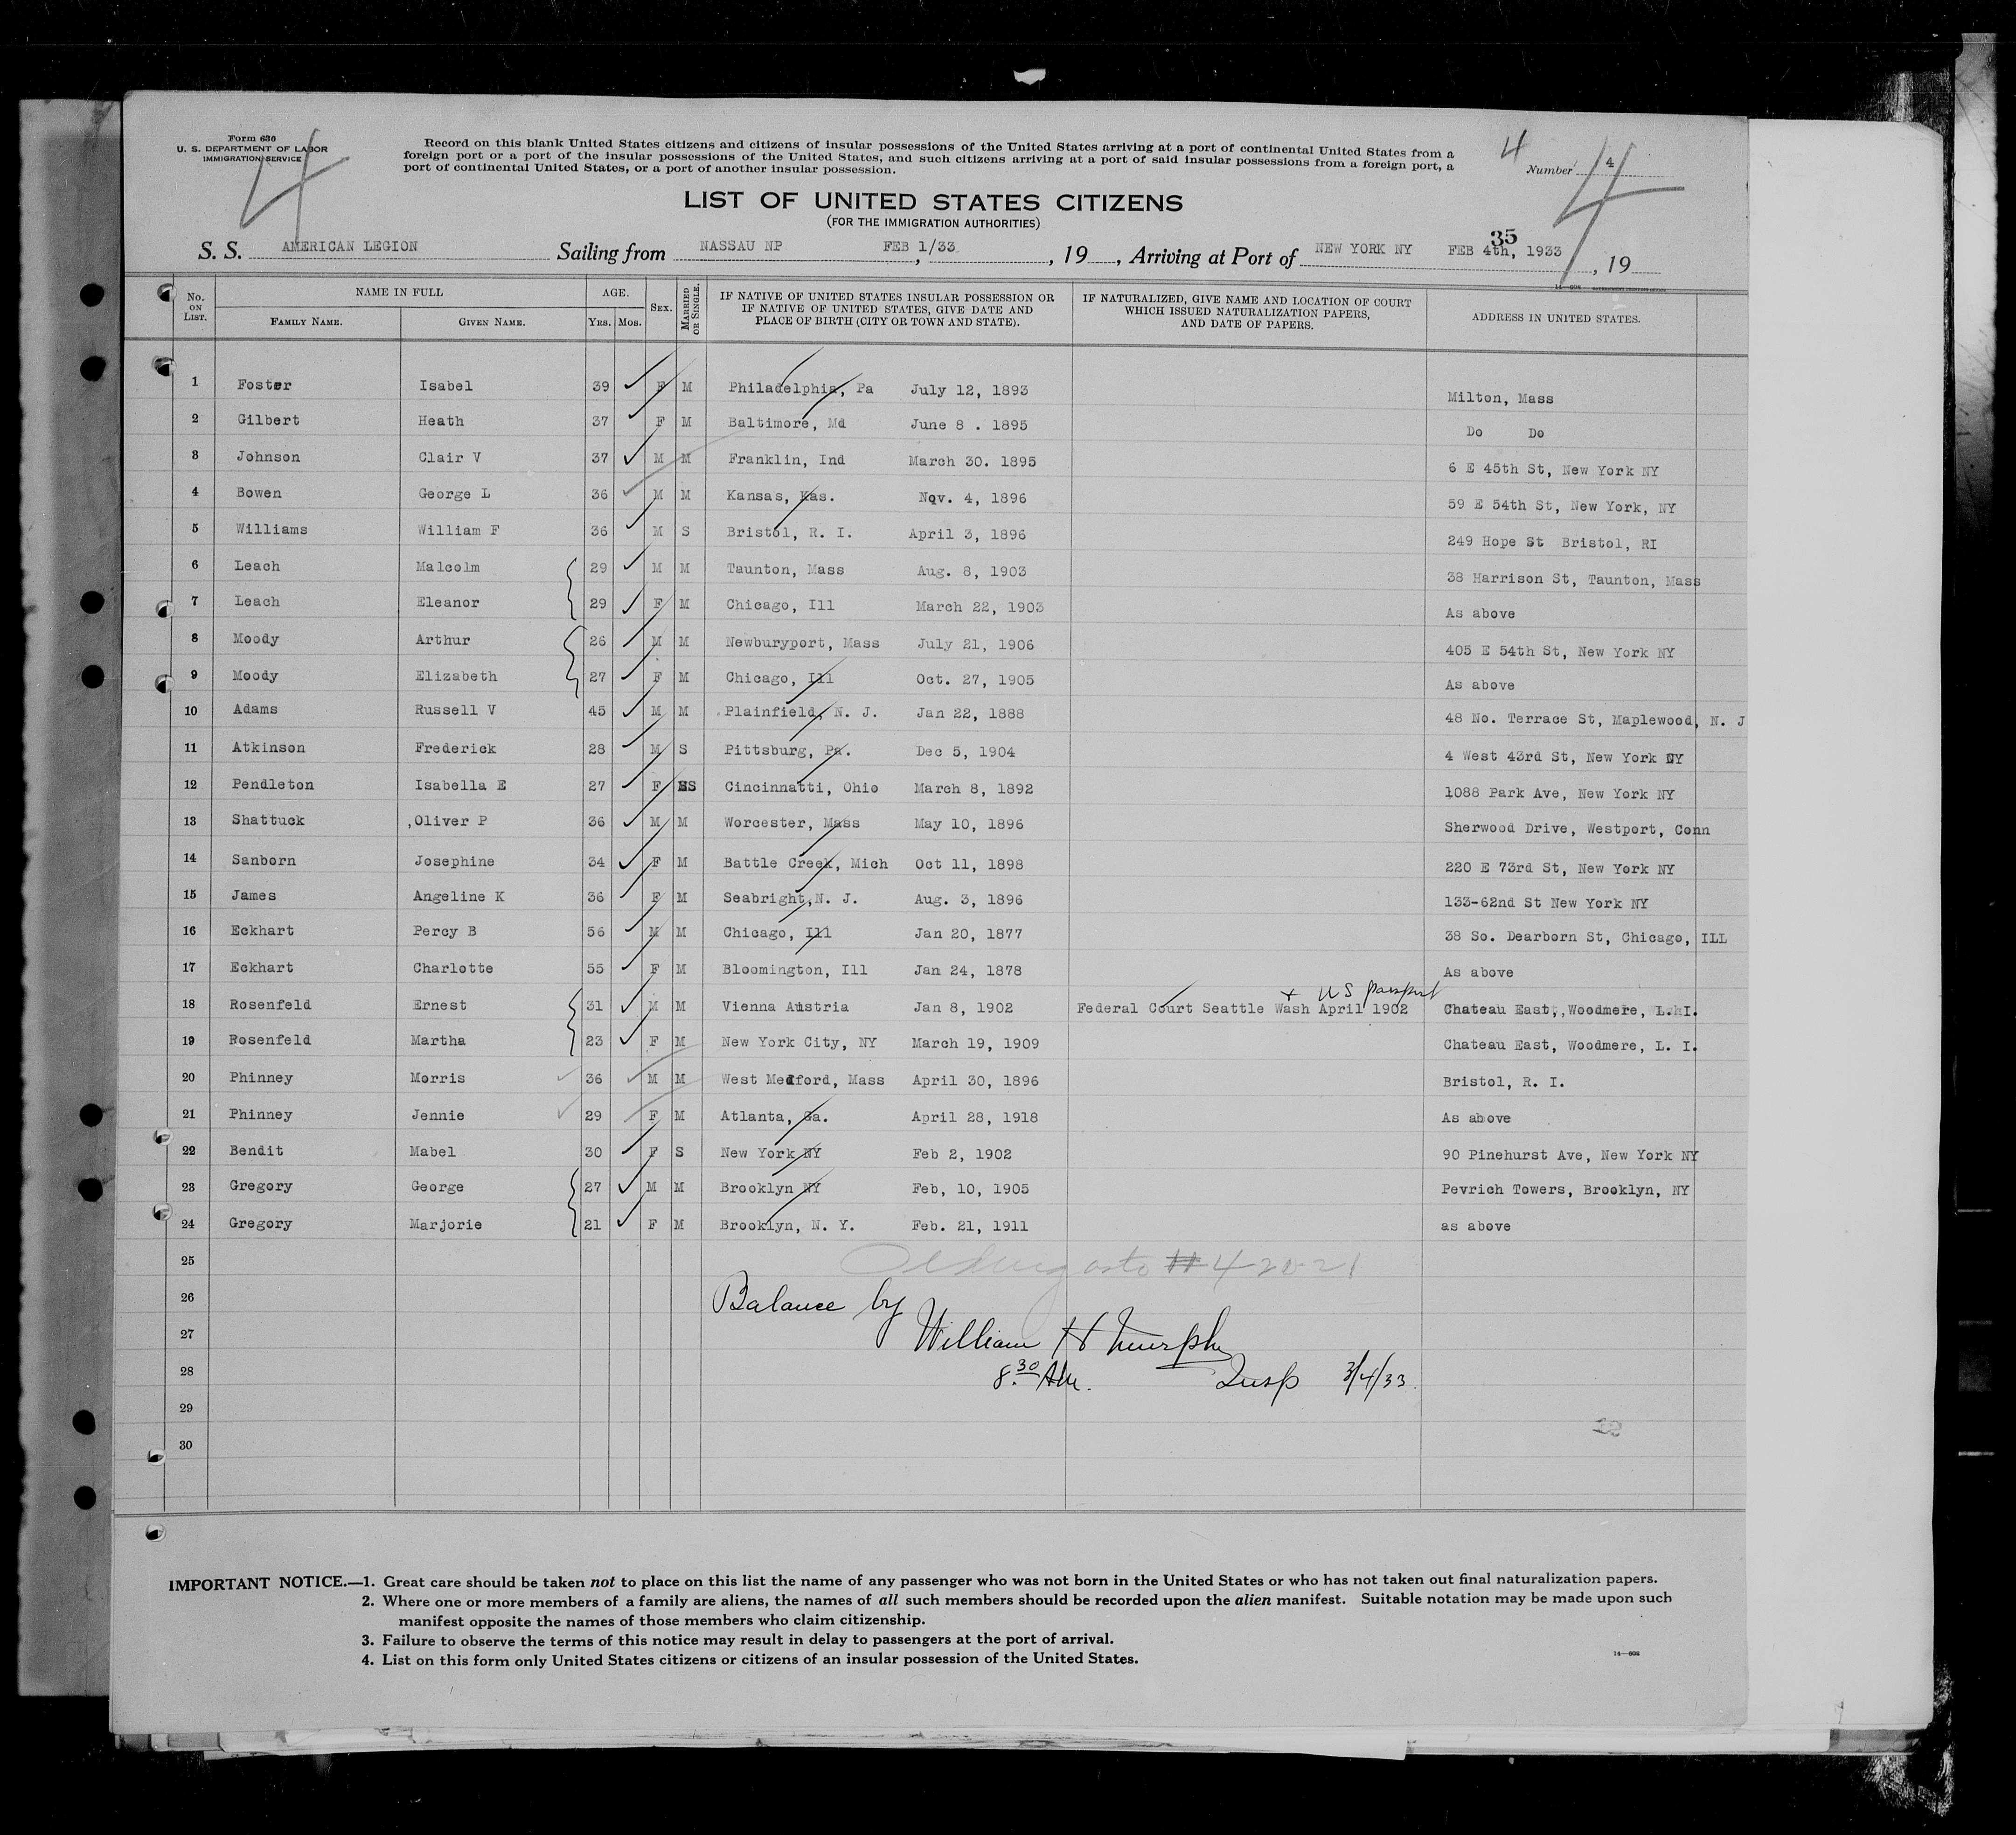 Form 630
U. S. DEPARTMENT OF LABOR
IMMIGRATION SERVICE
4
Record on this blank United States citizens and citizens of insular possessions of the United States arriving at a port of continental United States from a
foreign port or a port of the insular possessions of the United States, and such citizens arriving at a port of said insular possessions from a foreign port, a
port of continental United States, or a port of another insular possession.
4
Number 4
4
LIST OF UNITED STATES CITIZENS
(FOR THE IMMIGRATION AUTHORITIES)
35
S. S. AMERICAN LEGION Sailing from NASSAU NP, FEB 1/33, 19, Arriving at Port of NEW YORK NY FEB 4th, 1933, 19
No. ON LIST. NAME IN FULL FAMILY NAME. GIVEN NAME. AGE. YRS. MOS. SEX. MARRIED OR SINGLE. IF NATIVE OF UNITED STATES INSULAR POSSESSION OR IF NATIVE OF UNITED STATES, GIVE DATE AND PLACE OF BIRTH (CITY OR TOWN AND STATE). IF NATURALIZED, GIVE NAME AND LOCATION OF COURT WHICH ISSUED NATURALIZATION PAPERS, AND DATE OF PAPERS. ADDRESS IN UNITED STATES.
1 Foster Isabel 39 F M Philadelphia, Pa July 12, 1893 Milton, Mass
2 Gilbert Heath 37 F M Baltimore, Md June 8 . 1895 Do Do
3 Johnson Clair V 37 M M Franklin, Ind March 30. 1895 6 E 45th St, New York NY
4 Bowen George L 36 M M Kansas, Kas. Nov. 4, 1896 59 E 54th St, New York, NY
5 Williams William F 36 M S Bristol, R. I. April 3, 1896 249 Hope St Bristol, RI
6 Leach Malcolm 29 M M Taunton, Mass Aug. 8, 1903 38 Harrison St, Taunton, Mass
7 Leach Eleanor 29 F M Chicago, Ill March 22, 1903 As above
8 Moody Arthur 26 M M Newburyport, Mass July 21, 1906 405 E 54th St, New York NY
9 Moody Elizabeth 27 F M Chicago, Ill Oct. 27, 1905 As above
10 Adams Russell V 45 M M Plainfield, N. J. Jan 22, 1888 48 No. Terrace St, Maplewood, N. J
11 Atkinson Frederick 28 M S Pittsburg, Pa. Dec 5, 1904 4 West 43rd St, New York NY
12 Pendleton Isabella E 27 F S Cincinnatti, Ohio March 8, 1892 1088 Park Ave, New York NY
13 Shattuck ,Oliver P 36 M M Worcester, Mass May 10, 1896 Sherwood Drive, Westport, Conn
14 Sanborn Josephine 34 F M Battle Creek, Mich Oct 11, 1898 220 E 73rd St, New York NY
15 James Angeline K 36 F M Seabright,N. J. Aug. 3, 1896 133-62nd St New York NY
16 Eckhart Percy B 56 M M Chicago, Ill Jan 20, 1877 38 So. Dearborn St, Chicago, ILL
17 Eckhart Charlotte 55 F M Bloomington, Ill Jan 24, 1878 As above
+ US passport
18 Rosenfeld Ernest 31 M M Vienna Austria Jan 8, 1902 Federal Court Seattle Wash April 1902 Chateau East, Woodmere, L. I.
19 Rosenfeld Martha 23 F M New York City, NY March 19, 1909 Chateau East, Woodmere, L. I.
20 Phinney Morris 36 M M West Medford, Mass April 30, 1896 Bristol, R. I.
21 Phinney Jennie 29 F M Atlanta, Ga. April 28, 1918 As above
22 Bendit Mabel 30 F S New York NY Feb 2, 1902 90 Pinehurst Ave, New York NY
23 Gregory George 27 M M Brooklyn NY Feb, 10, 1905 Pevrich Towers, Brooklyn, NY
24 Gregory Marjorie 21 F M Brooklyn, N. Y. Feb. 21, 1911 as above
25 as to # 4-20-21
26 Balance by
27 William H Murphy
28 8.30 AM. Insp 3/4/33.
29
30
IMPORTANT NOTICE.—1. Great care should be taken not to place on this list the name of any passenger who was not born in the United States or who has not taken out final naturalization papers.
2. Where one or more members of a family are aliens, the names of all such members should be recorded upon the alien manifest. Suitable notation may be made upon such
manifest opposite the names of those members who claim citizenship.
3. Failure to observe the terms of this notice may result in delay to passengers at the port of arrival.
4. List on this form only United States citizens or citizens of an insular possession of the United States.
14—608